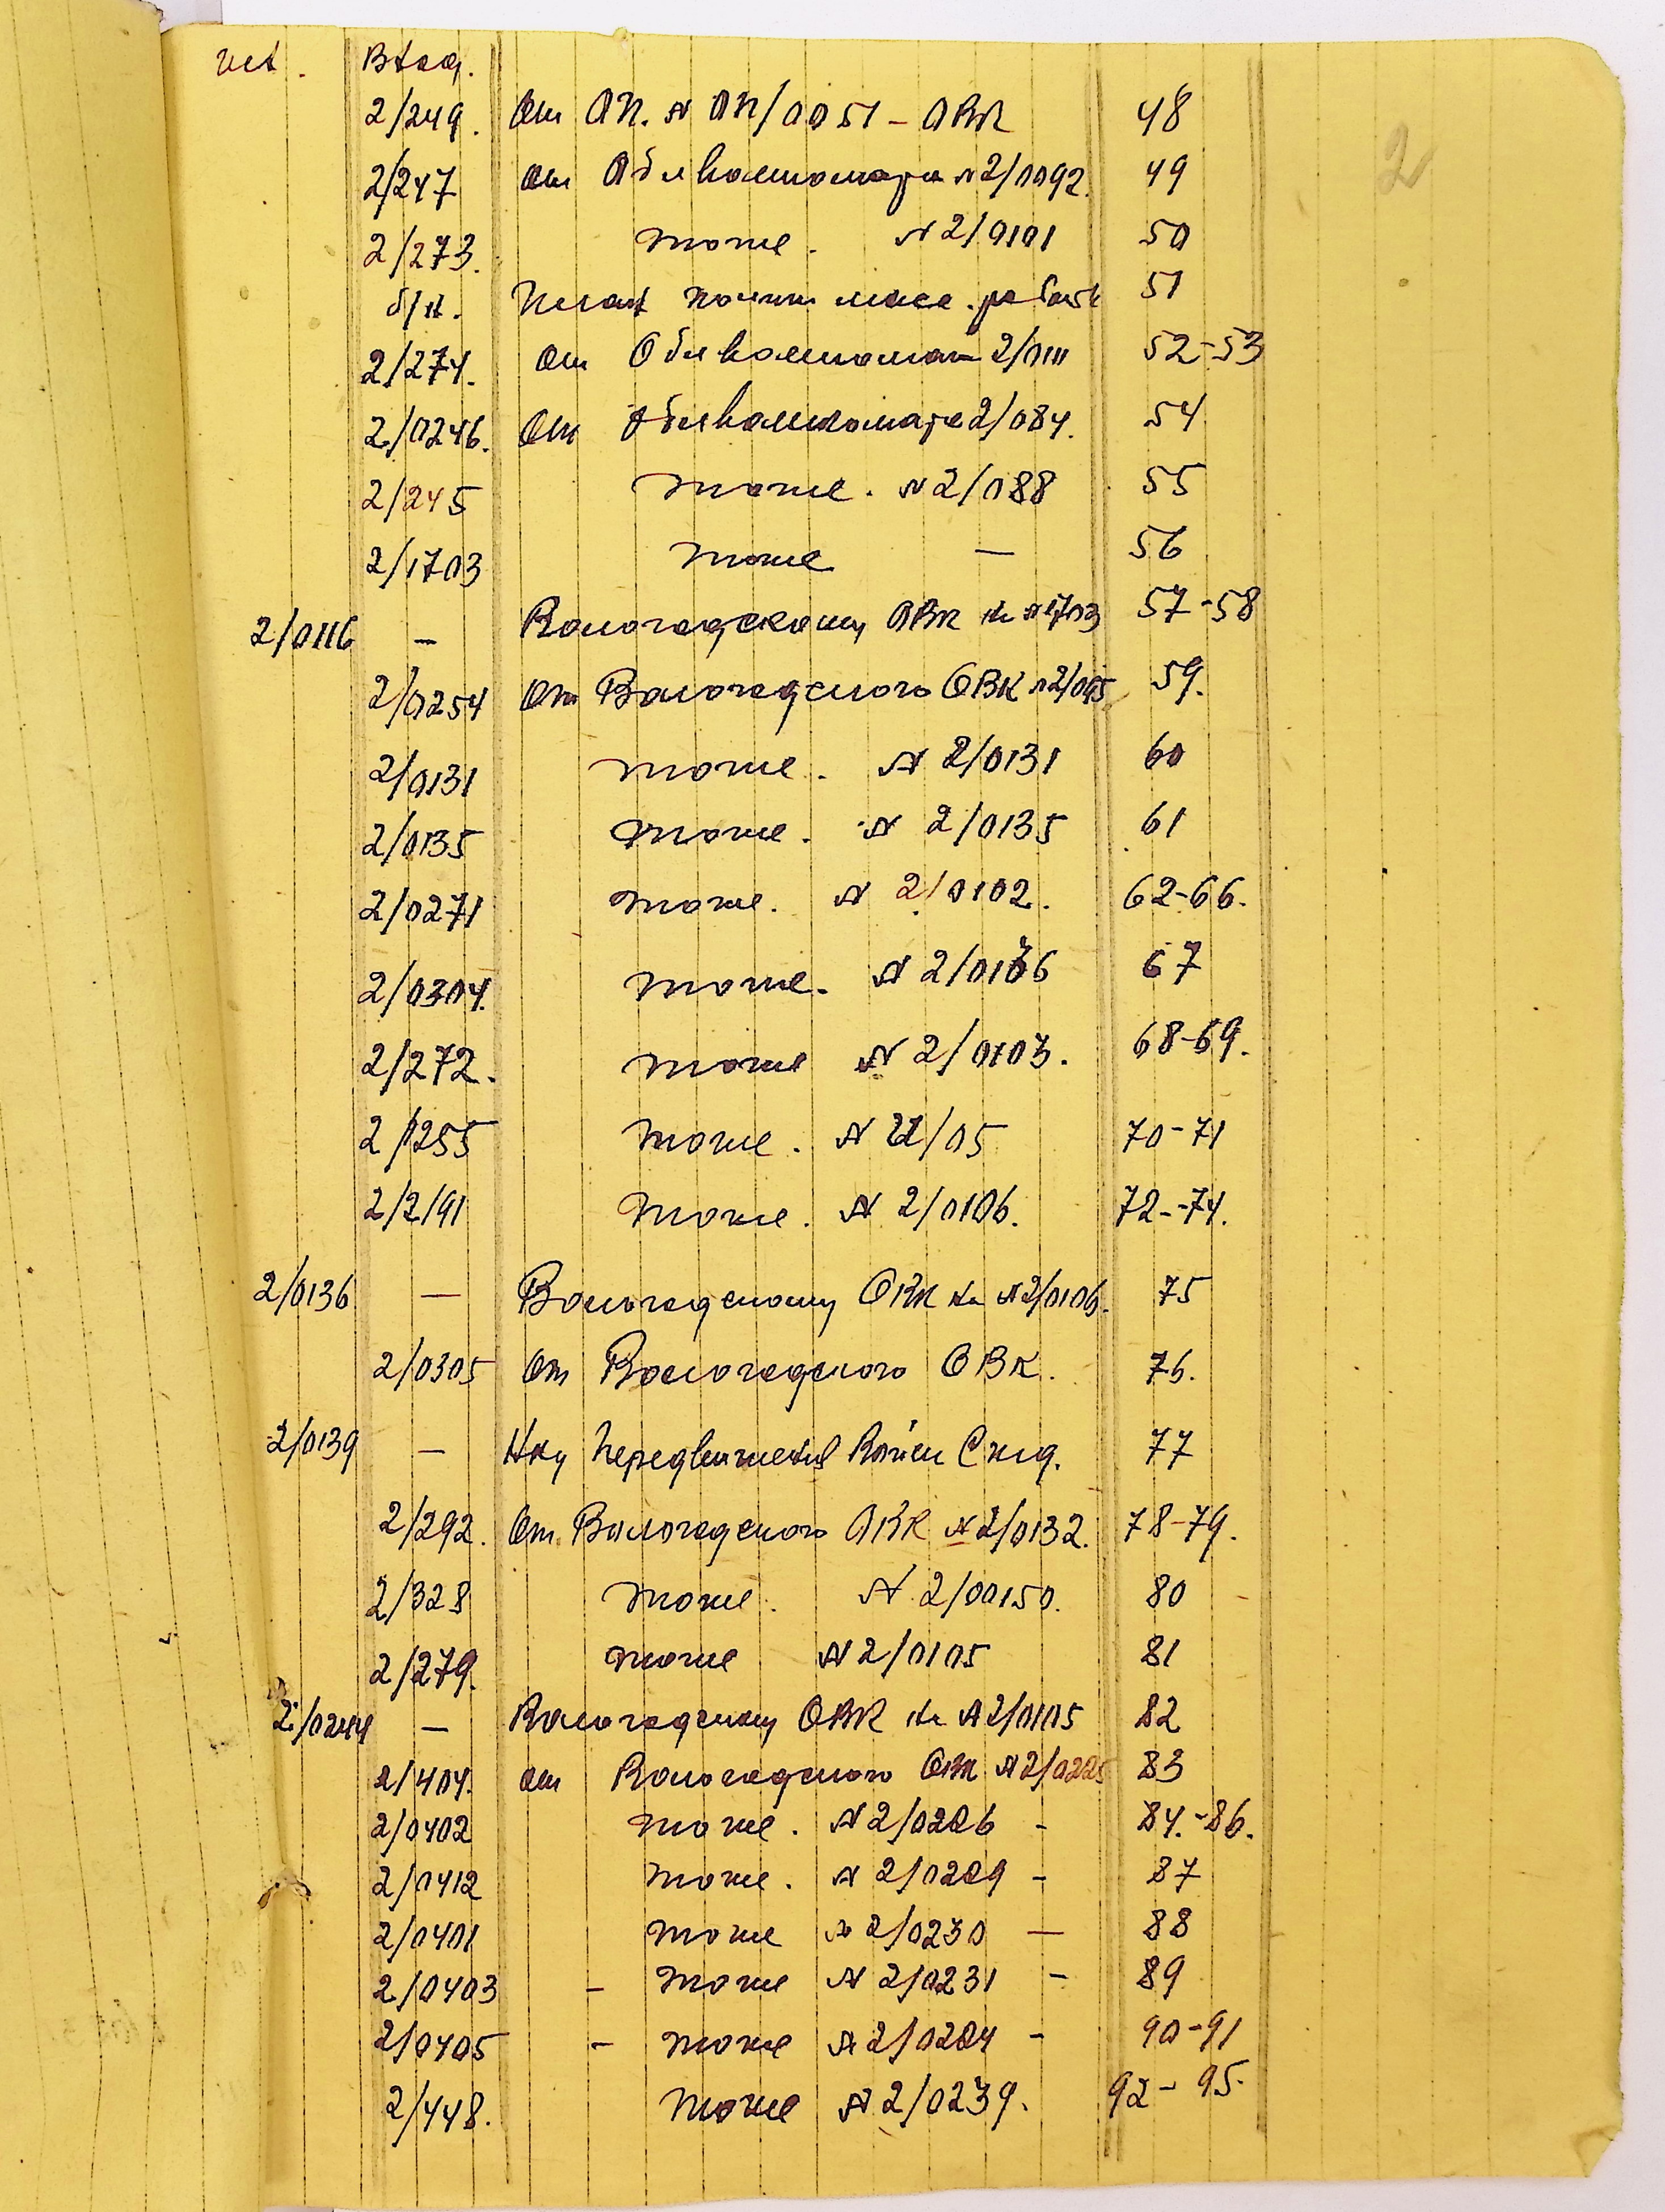 исх. Входу.
2/249. От ОП. N ОП/0051 - ОВК 48
2
2/247 от Облвоенкомата N 2/0092. 49
2/273. тоже. N 2/0101 50
б/н. План полит. масс. работы 51
2/274. от Облвоенкомат 2/0111 52-53
2/0246. От Облвоенкомата 2/084. 54
2/245 тоже. N 2/088 55
2/1703 тоже — 56
2/0116 — Вологодскому ОВК на N 1703 57-58
2/0254 От Вологодского ОВК N 2/095 59.
2/0131 тоже. N 2/0131 60
2/0135 тоже. N 2/0135 61
2/0271 тоже. N 2/0102. 62-66.
2/0304. тоже. N 2/0136 67
2/272. тоже N 2/0103. 68-69.
2/255 тоже. N 22/05 70-71
2/2/91 тоже. N 2/0106. 72-74.
2/0136 — Вологодскому ОВК на N 2/0106. 75
2/0305 От Вологодского ОВК. 76.
2/0139 — Нку Передвижения Войск Скжд. 77
2/292. От Вологодского ОВК N 2/0132. 78-79.
2/328 тоже. N 2/00150. 80
2/279. тоже N 2/0105 81
2/0244 — Вологодскому ОВК на N 2/0105 82
2/404. от Вологодского ОВК N 2/0225 83
2/0402 тоже. N 2/0226 - 84.-86.
2/0412 тоже. N 2/0229 - 87
2/0401 тоже N 2/0230 — 88
2/0403 - тоже N 2/0231 - 89
2/0405 - тоже N 2/0224 - 90-91
2/448. тоже N 2/0239. 92-95.